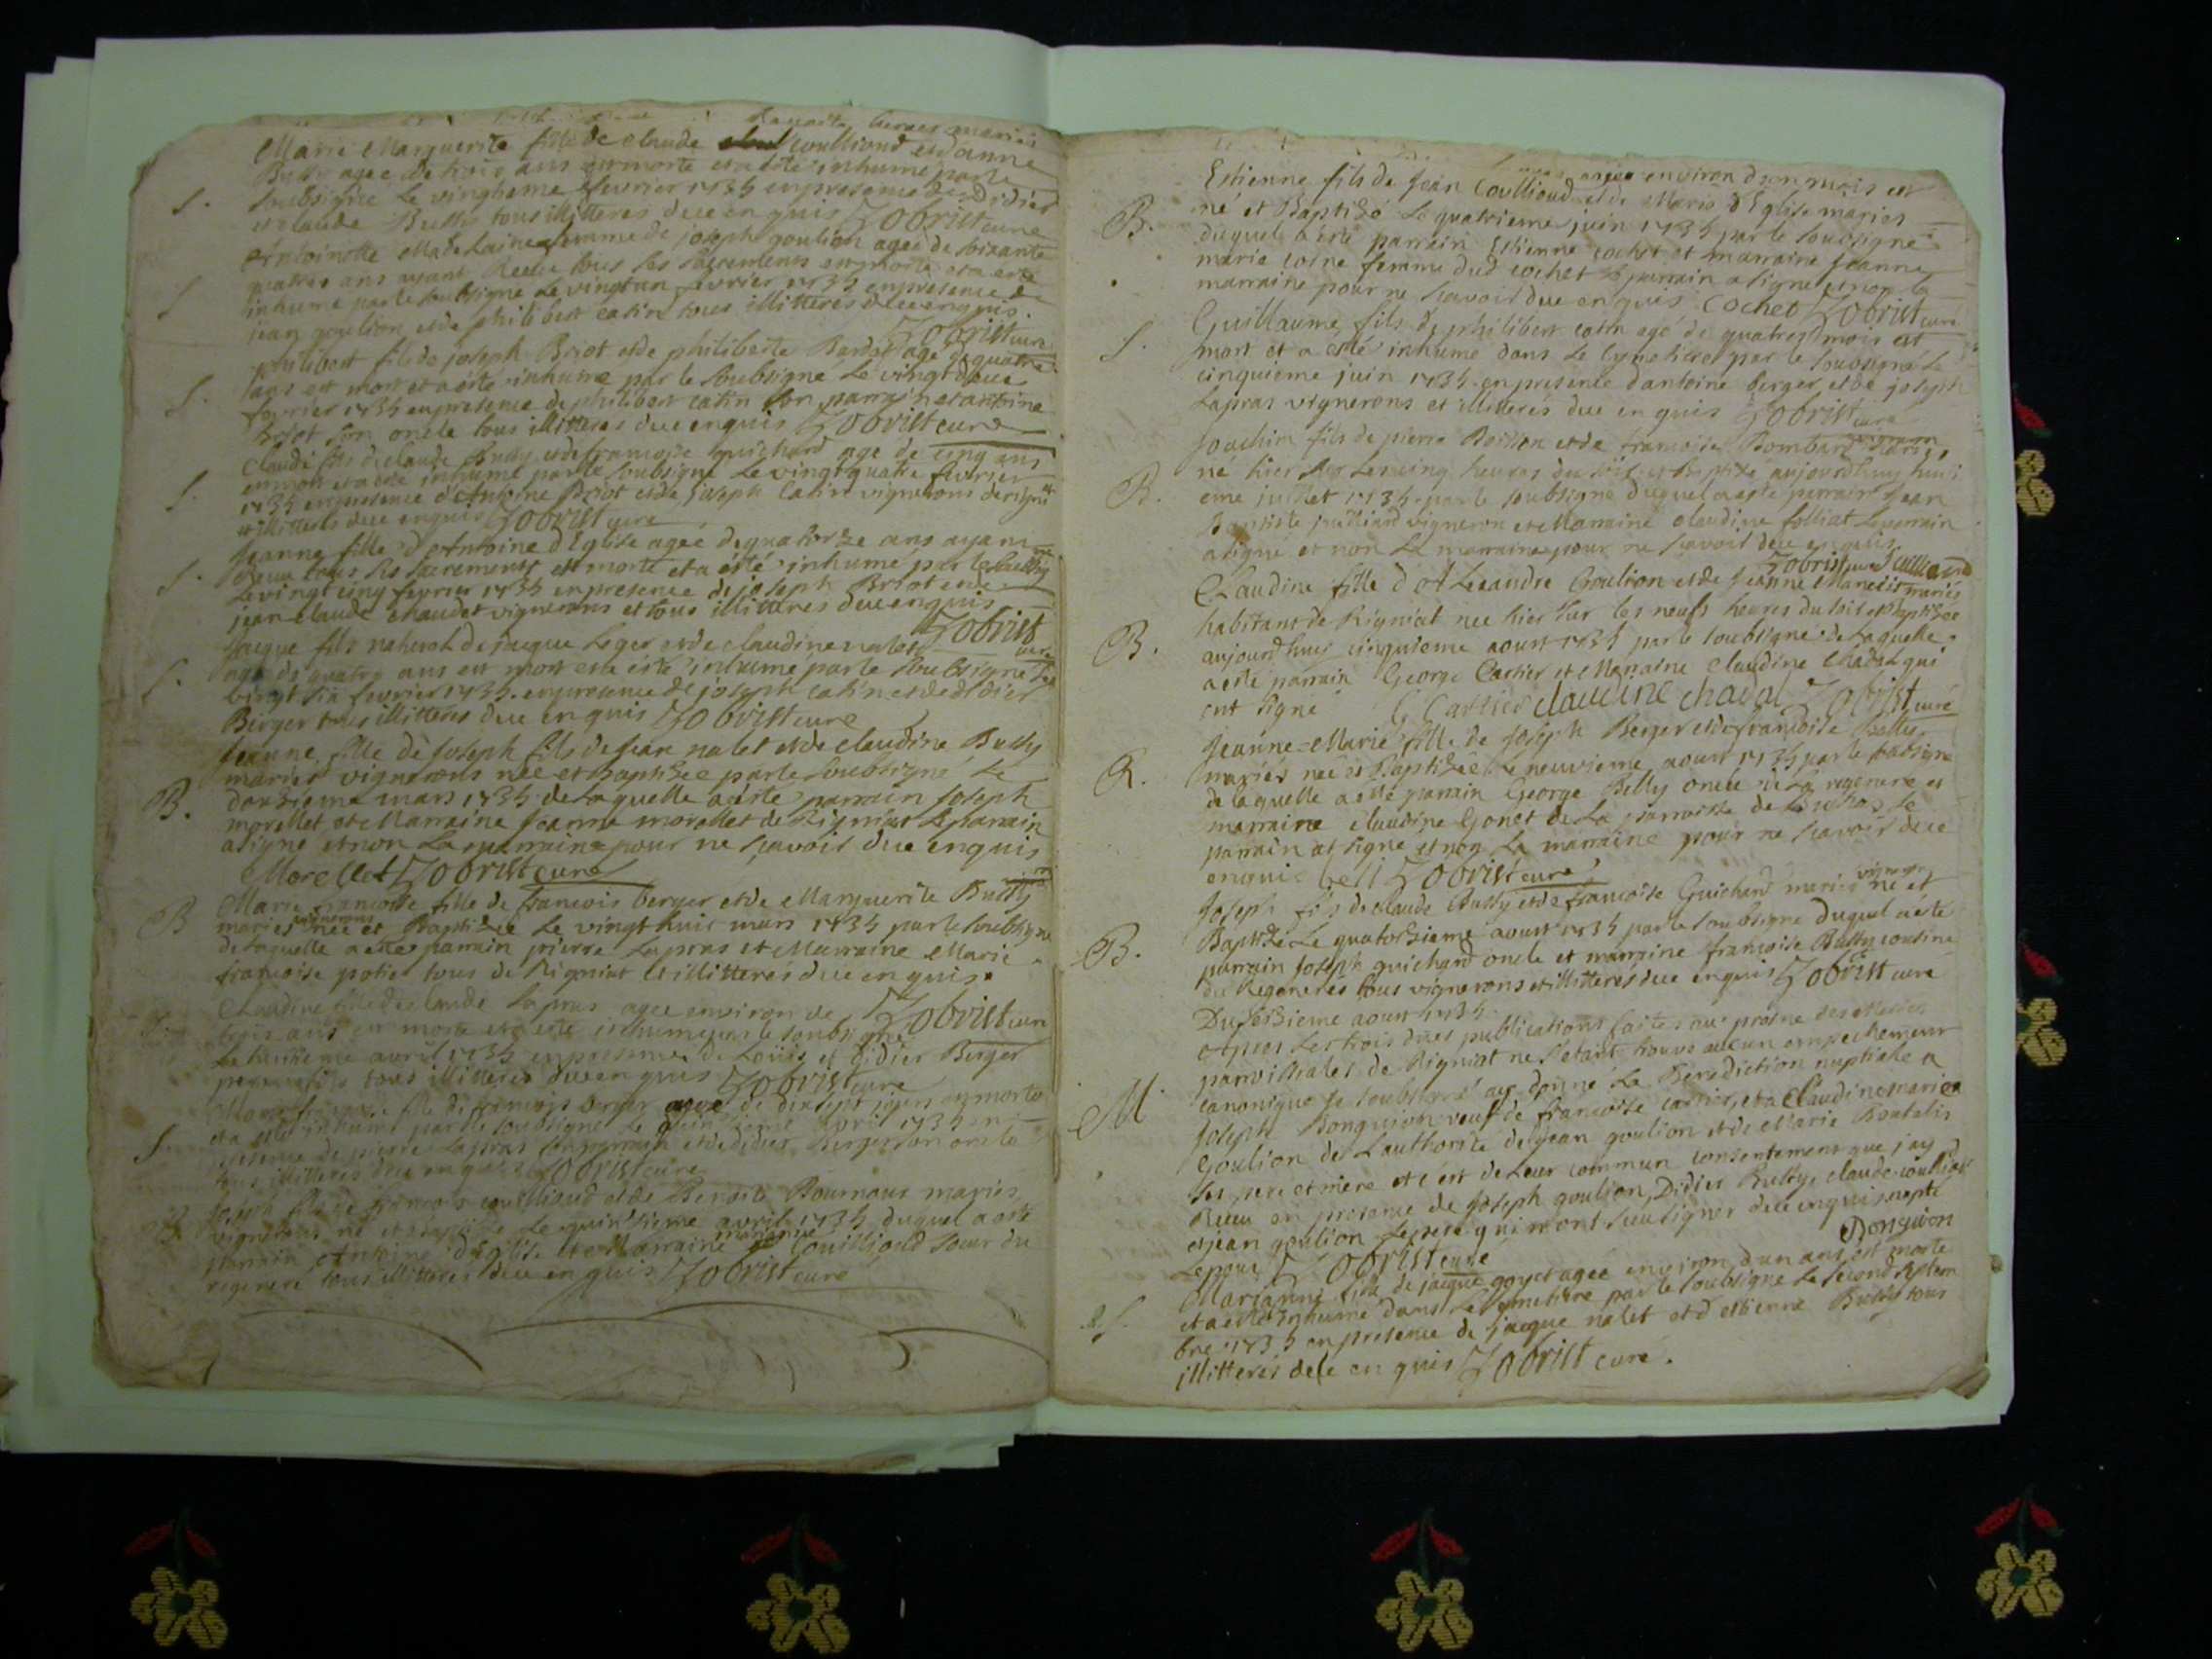 Marie Marguerite fille de Claude Coulliond et d anne
Bussy agee de trois ans est morte et a été inhume par le
soubsigné le vingtieme fevrier 1735 en presence de Didier
et claude Bussy tous illitteres de ce enquis Zobrist curé
S.
Antoinette Madelaine femme de joseph goulion agee de soixante
quatre ans ayant Receu tous les sacrements est morte et a esté
inhume par le soubsigné le vingt un fevrier 1735 en presence de
jean goulion et de philibert catin tous illitteres de ce enquis
Zobrist curé
S
philibert fils de joseph Briot et de philiberte agé de quatre
ans est mort et a été inhume par le soubsigné le vingt deux
fevrier 1735 en presence de philibert catin son parrain et antoine
Briot son oncle tous illitteres de ce enquis Zobrist curé
S.
Claude fils de claude Bussy et de francoise Guichard agé de cinq ans
est mort et a été inhumé par le soubsigné le vingt quatre fevrier
1735 en presence d Antoine Briot et de joseph Catin vignerons de rigniat
et illitteres de ce enquis Zobrist curé
S.
Jeanne fille d Antoine d Eglise agée de quatorze ans ayant
Receu tous les sacrements est morte et a été inhumé par le soubsigné
le vingt cinq fevrier 1735 en presence de joseph Briot et de
jean claude chaudet vignerons et tous illitteres de ce enquis
Zobrist curé
S.
Jacque fils naturel de jacque Leger et de claudine nalet
agé de quatre ans est mort et a esté inhume par le soubsigné le
vingt six fevrier 1735 en presence de joseph catin et de didier
Berger tous illitteres de ce enquis Zobrist curé
S.
Jeanne fille de Joseph fils de jean nalet et de claudine Bussy
mariés vignerons née et baptizée par le soubsigné le
douzieme mars 1735 de laquelle a été parrain Joseph
morellet et Marraine Jeanne morellet de Rigniat le parrain
a signé et non la marraine pour ne scavoir de ce enquis
Morellet Zobrist curé
B.
Marie francoise fille de francois berger et de Marguerite Bussy
mariés vignerons née et Baptizée le vingt huit mars 1735 par le soubsigné
de laquelle a esté parrain pierre Lapras et Marraine Marie
francoise potier tous de Rigniat et illitteres de ce enquis
Zobrist curé
B
Claudine fille de claude Lapras agee environ de
trois ans est morte et a esté inhumé par le soubsigné
le huitieme avril 1735 en presence de Louis et Didier Berger
pere et fils tous illitteres de ce enquis Zobrist curé
S.
Marie francoise fille de francois berger agee de dix sept jours est morte
et a esté inhumé par le soubsigné le quinzieme apvril 1735 en
presence de pierre Lapras son parrain et de didier Berger son oncle
tous illitteres de ce enquis Zobrist curé
S.
Joseph fils de francois coulliaud et de Benoite Bournoux mariés
vignerons né et Baptizé le quinzieme avril 1735 duquel a esté
parrain Antoine d Eglise et Marraine marianne Couilliaud soeur du
regeneré tous illitteres de ce enquis Zobrist curé
B
Estienne fils de Jean Coulliaud et de Marie d Eglise mariés
né et Baptizé le quatrieme juin 1735 par le soubsigné
duquel a été parrain Estienne cochet et marraine Jeanne
marie coine femme dud cochet le parrain a signé et non la
marraine pour ne scavoir de ce enquis Cochet Zobrist curé
B.
Guillaume fils de philibert catin agé de quatres mois est
mort et a esté inhumé dans le cymetiere par le soussigné le
cinquieme juin 1735 en presence d antoine berger et de joseph
Lapras vignerons et illitterés de ce enquis Zobrist curé
S.
Joachim fils de pierre Boisson et de francoise Bombard vignerons mariés,
né hier sur les cinq heures du soir et baptizé aujourdhuy huiti
eme juillet 1735 par le soubsigné duquel a esté parrain Jean
Baptiste juilliard vigneron et Marraine claudine folliat le parrain
a signé et non la marraine pour ne scavoir de ce enquis
Zobrist curé Juilliard
B.
Claudine fille d Alexandre Goulion et de Jeanne Manecit mariés
habitant de Rigniat née hier sur les neufs heures du soir et Baptizée
aujourdhuy cinquieme aoust 1735 par le soubsigné de laquelle
a esté parrain George Cartier et Marraine claudine Chadal qui
ont signé G Cartier claudine chadal Zobrist curé
B.
Jeanne=Marie fille de Joseph Berger et de francoise Belly
mariés née et Baptizée le neuvieme aoust 1735 par le subsigné
de laquelle a esté parrain George Belly oncle de la regenere et
marraine claudine Gonet de la parroisse de le
parrain at signé et non la marraine pour ne scavoir de ce
enquis belli Zobrist curé
R.
Joseph fils de claude Bussy et de francoise Guichard mariés vignerons né et
Baptizé le quatorzieme aoust 1735 par le soubsigné duquel a été
parrain Joseph guichard oncle et marraine francoise Bussy cousine
du Regenerés tous vignerons et illitterés de ce enquis Zobrist curé
B.
Du seizieme aoust 1735
apres les trois dues publications faites au prosne des Messes
parroissiales de Rigniat ne s'etant trouvé aucun empechement
canonique je soubsigné ay donné la Benediction nuptiale a
Joseph Donguion veuf de francoise cartier, et a Claudine marie
Goulion de l'authorité de jean goulion et de Marie Boutelis
ses pere et mere et c'est de leur commun consentement que j'ay
Receu en presence de Joseph goulion, Didier Bussy, claude coulliat
et jean goulion le pere qui n'ont sceu signer de ce enquis, excepté
l'epoux Zobrist curé Donguion
M
Marianne fille de jacque goyet agée environ d'un ans est morte
et a esté inhumé dans le cymetiere par le soubsigné le second septem
bre 1735 en presence de jacque nalet et d estienne Bussy tous
illitterés de ce enquis Zobrist curé.
S.